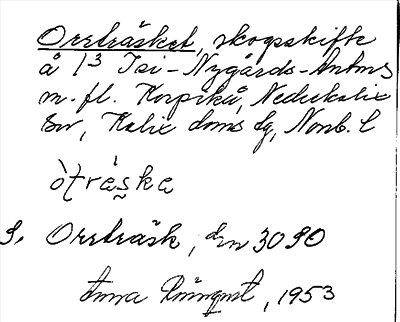 Orrträsket, skogsskifte
å 1³ Isi-Nygårds-Antons
m. fl. Korpikå, Nederkalix
sn, Kalix doms dg, Norrb. l
òtrȧs̬ka
S. Orrträsk, den 30 SO
Anna Rönnqvist, 1953